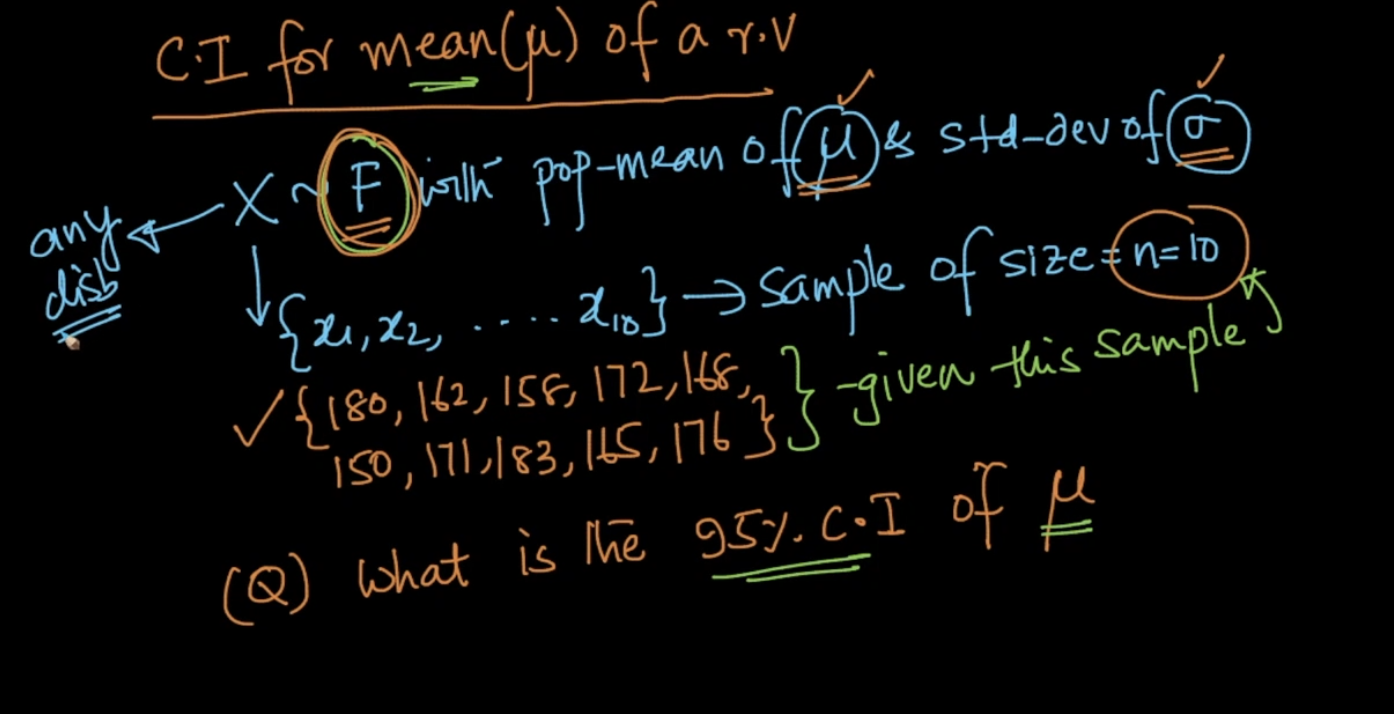 C.I for mean(μ) of a r.v
X ~ F with pop-mean of μ & std-dev of σ
any
disb
{x1, x2, ..... x10} → Sample of size = n=10
✓{180, 162, 158, 172, 168,
150, 171, 183, 165, 176} } -given this sample
(Q) What is the 95%. C.I of μ